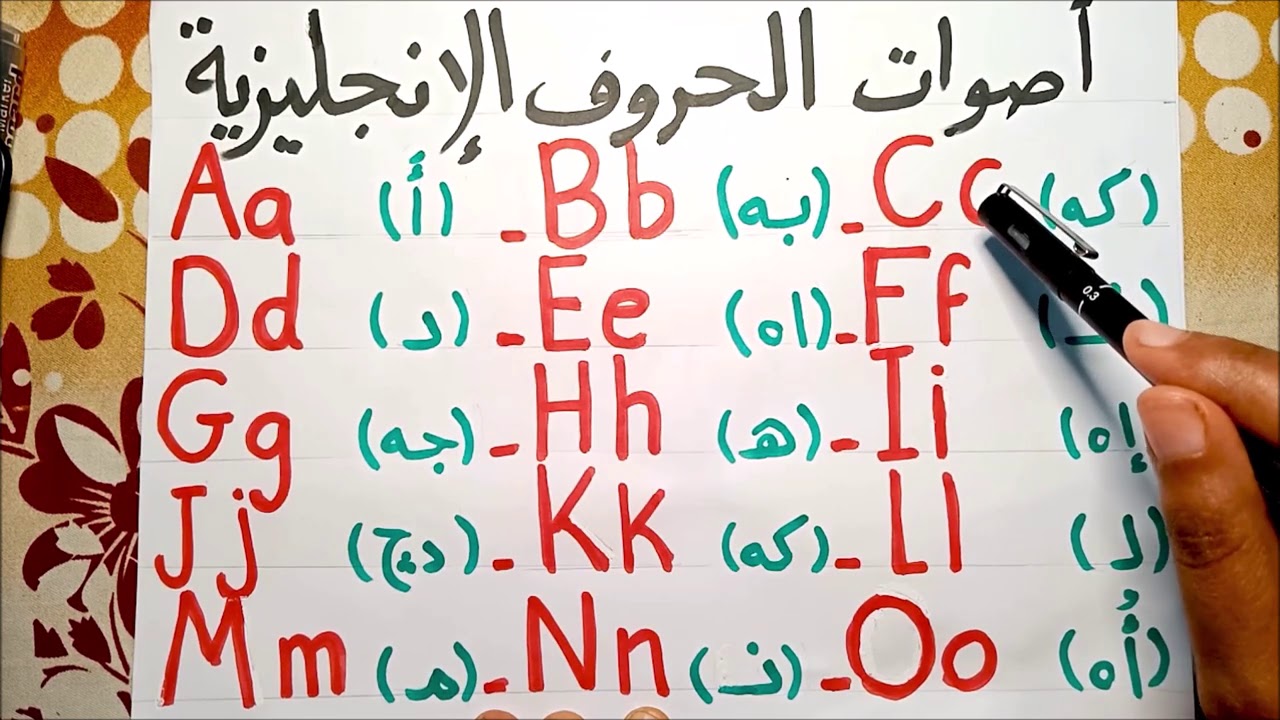 أصوات الحروف الإنجليزية
Aa (أ) - Bb (به) - Cc (كه)
Dd (د) - Ee (اه) - Ff
Gg (جه) - Hh (ه) - Ii (إه)
Jj (ديج) - Kk (كه) - Ll (لـ)
Mm (مـ) - Nn (نـ) - Oo (أُه)
0.3